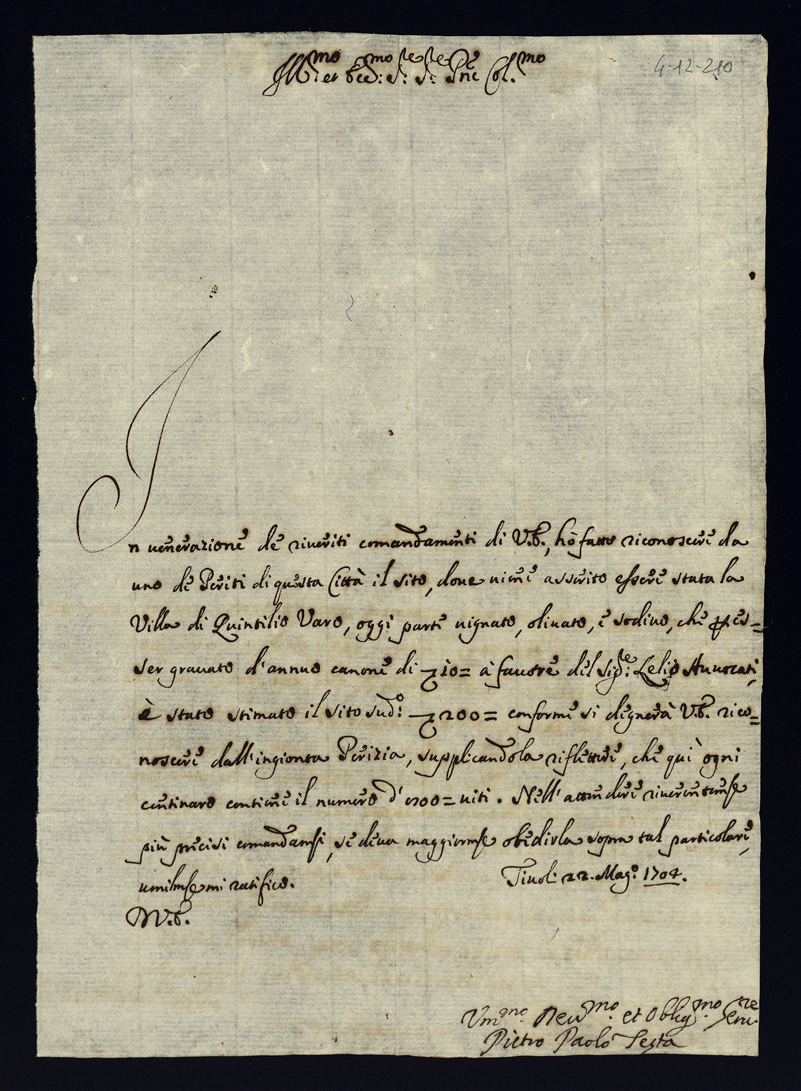 Ill.mo et Ecc.mo S.re S.re P.ne Col.mo
4-12-210
In venerazione de riveriti comandamenti di V.E., hò fatto riconoscere da
uno de Periti di questa Città il sito, dove viene asserito essere stata la
Villa di Quintilio Varo, oggi parte vignato, olivato, e sodivo, che p es=
ser gravato d'annuo canone di 10= à favore del Sig.re Lelio Auvocati,
è stato stimato il sito sud.o 200= conforme si degnerà V.E. rico=
noscere dall'ingionta Perizia, supplicandola riflettere, che quì ogni
centinaro contiene il numero d' viti. Nell' attendere riverentem.te
più precisi comandam.ti, se deva maggiorm.te obedirla sopra tal particolare,
umilm.te mi ratifico.
Tivoli 22. Mag.o 1704.
D V.E.
Um.mo Dev.mo et Oblig.mo Ser.re
Pietro Paolo Testa